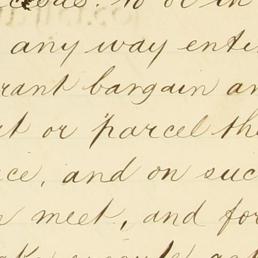 to be in
any way enti
rant bargain an
t or parcel the
ice, and on suc
meet, and for